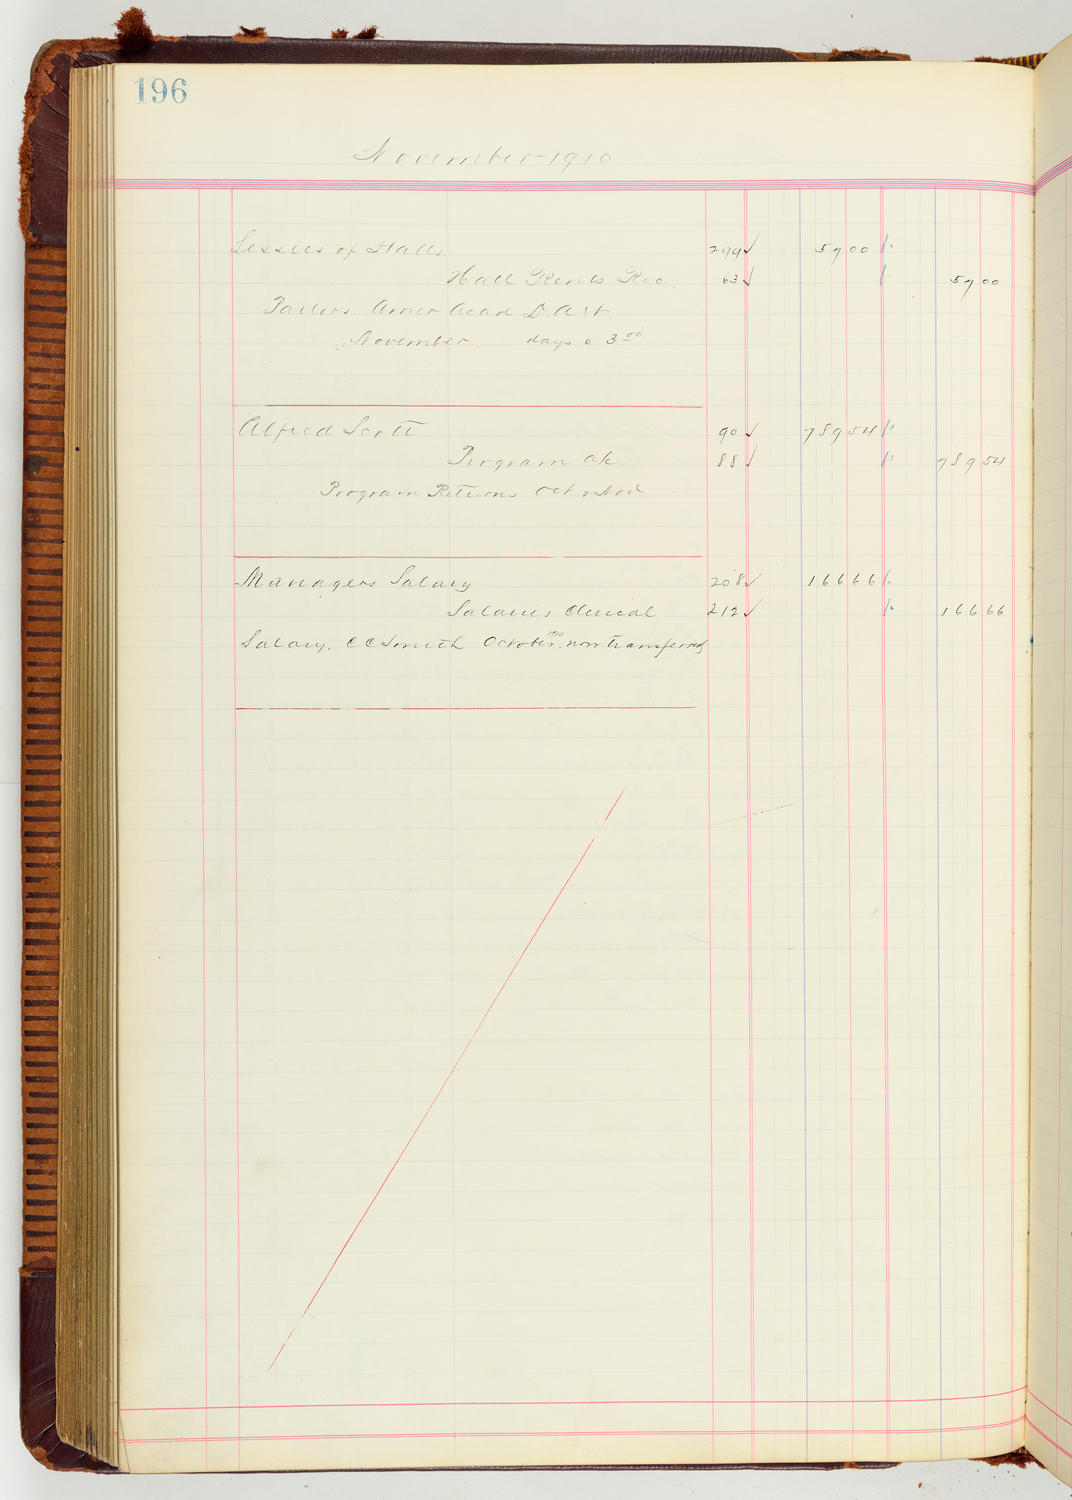 196
November 1910
Lessees of Halls 294 ✓ 57 00
Hall Rents Rec. 63 ✓ 57 00
Parlors. Amer Acad D. Art.
November. days @ 3 00
Alfred Scott 90 ✓ 789 54
Program a/c. 88 ✓ 789 54
Program Returns Oct
Managers Salary 208 ✓ 166 66
Salaries Clerical 212 ✓ 166 66
Salary. C C Smith October 1910 now transferred